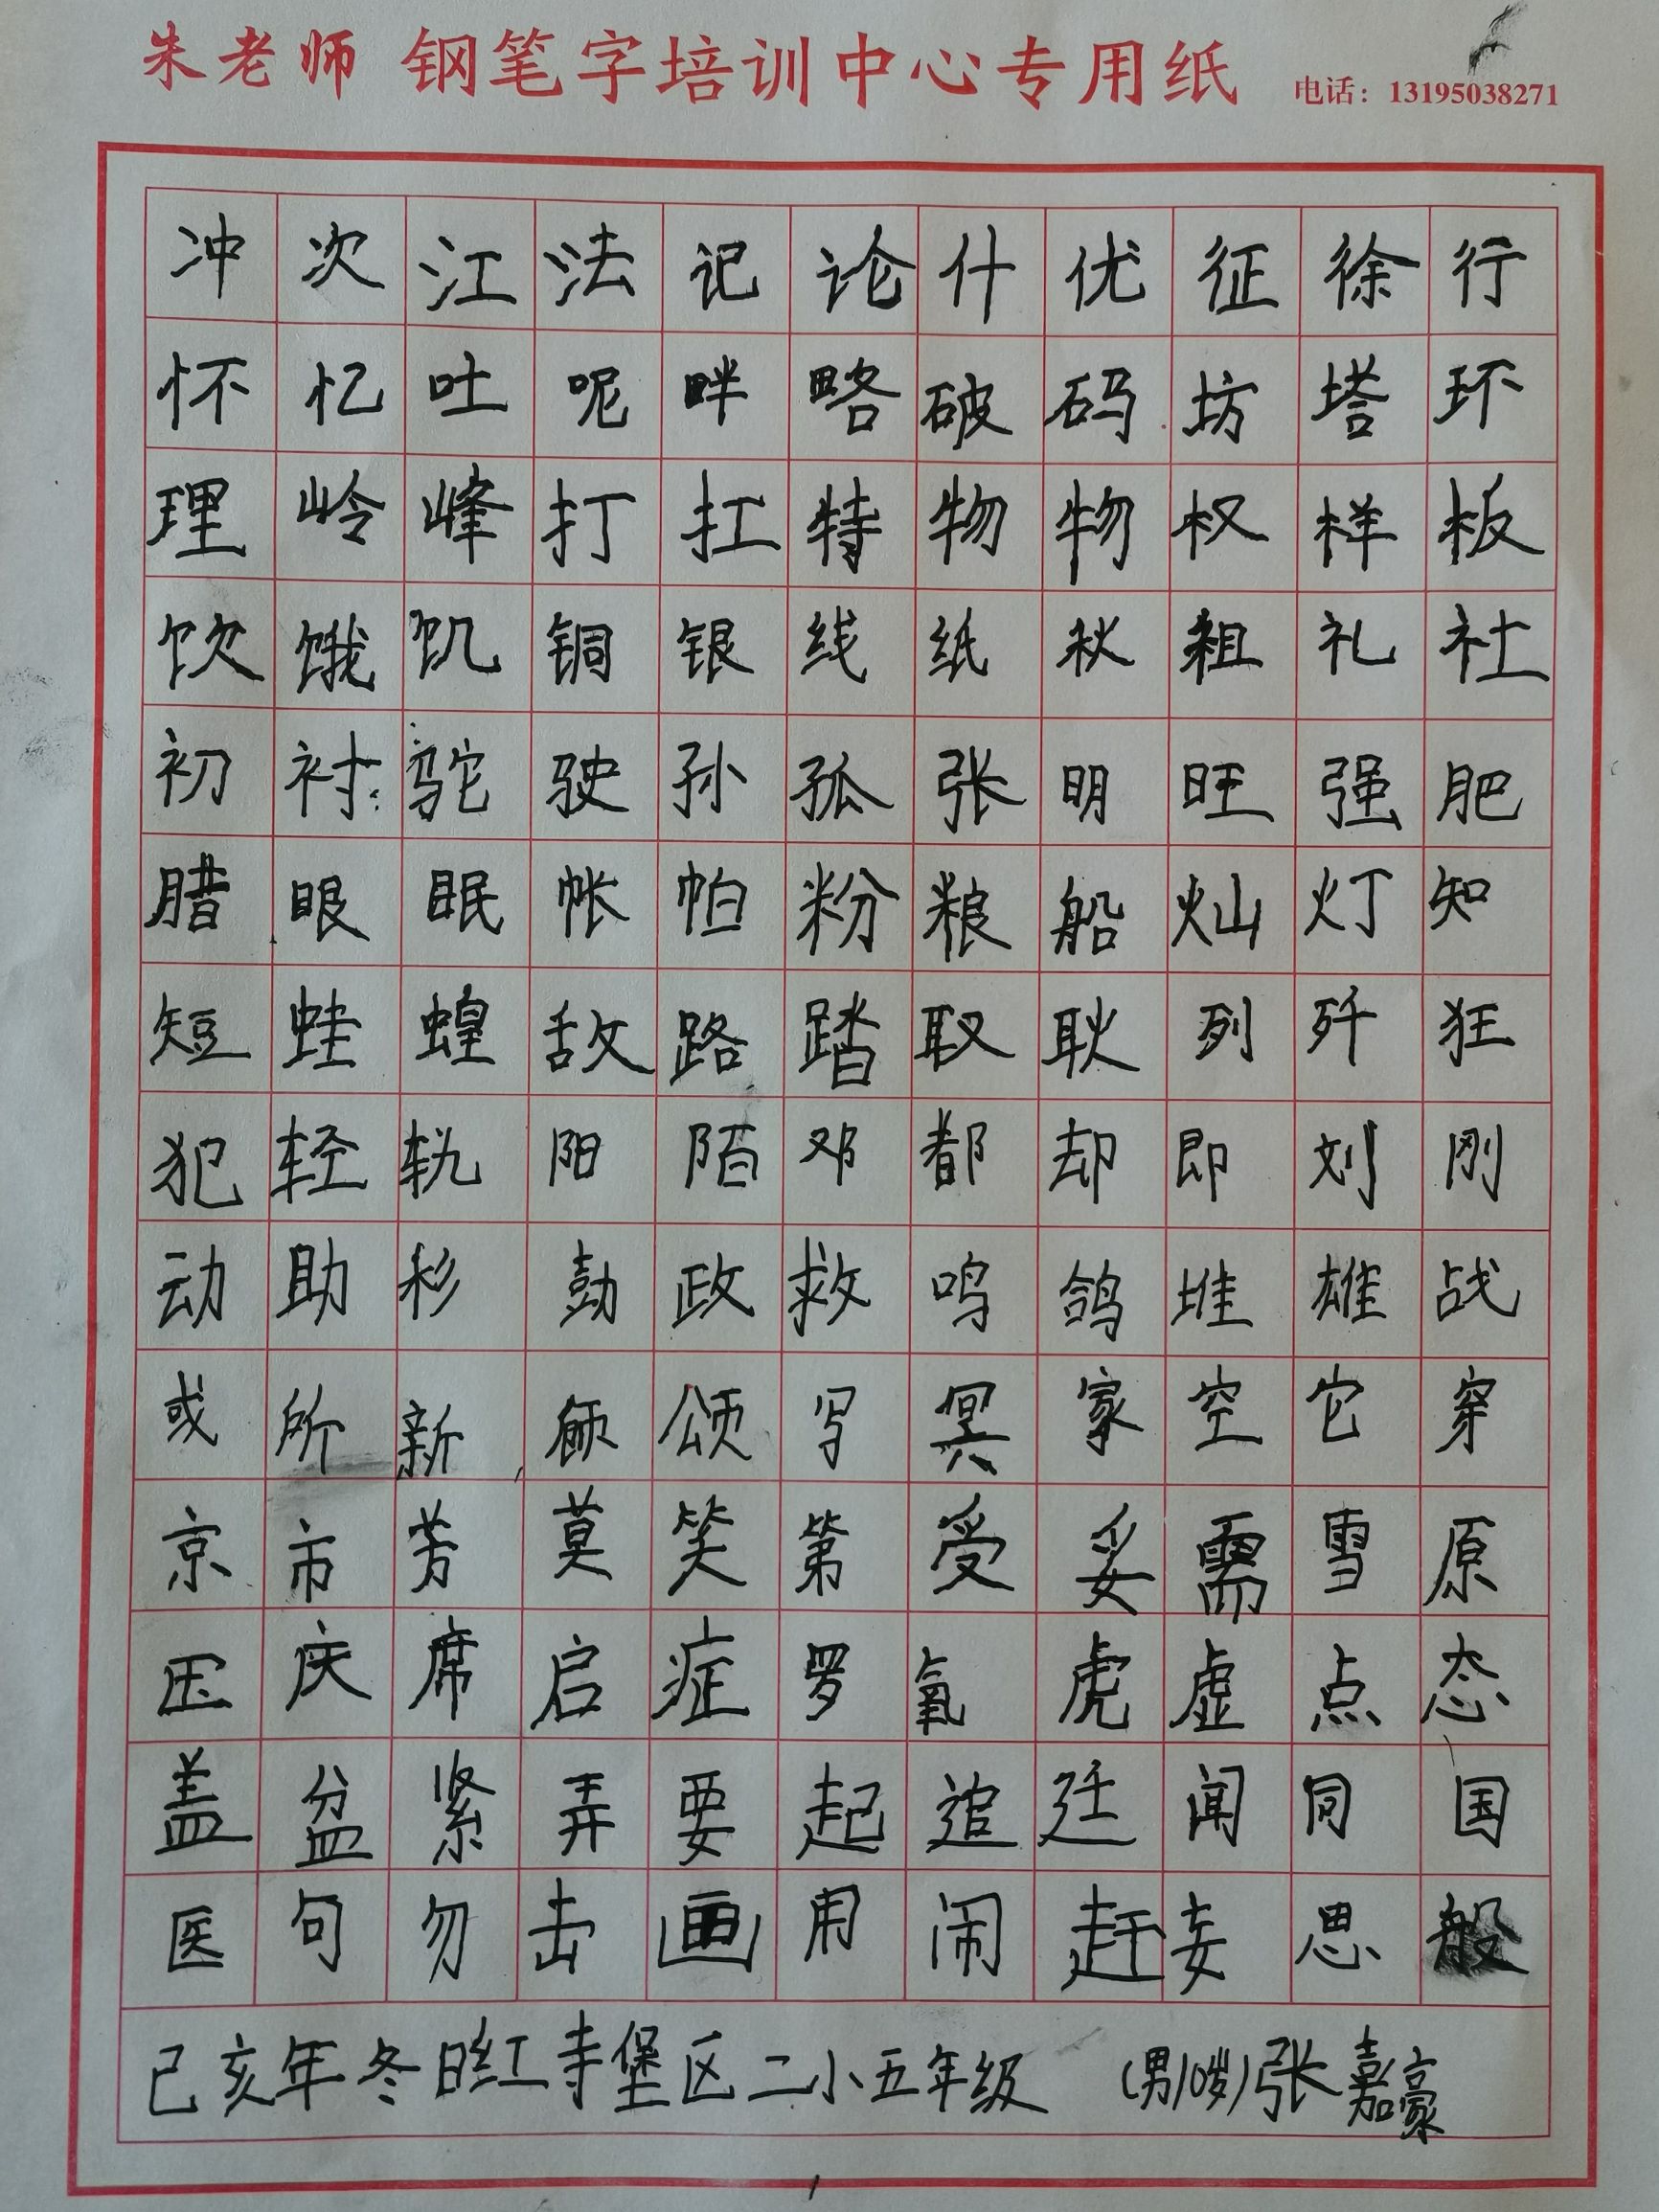 朱老师 钢笔字培训中心专用纸 电话：13195038271
冲次江法记论什优征徐行
怀忆吐呢畔略破码坊塔环
理岭峰打扛特物物权样板
饮饿饥铜银线纸秋粗礼社
初衬驼驶孙孤张明旺强肥
腊眼眠帐帕粉粮船灿灯知
短蛙蝗敌路踏取耿列歼狂
犯轻轨阳陌邓都却即刘刚
动助彩政救鸣鸽堆雄战
或所新颂写冥家空它穿
京市芳莫笑第受妥需雪原
压庆席启症罗氧虎虚点态
盖盆紧弄要起追廷闻同国
医句勿击画用闹赶妄思般
己亥年冬日红寺堡区二小五年级 (男10岁)张嘉豪